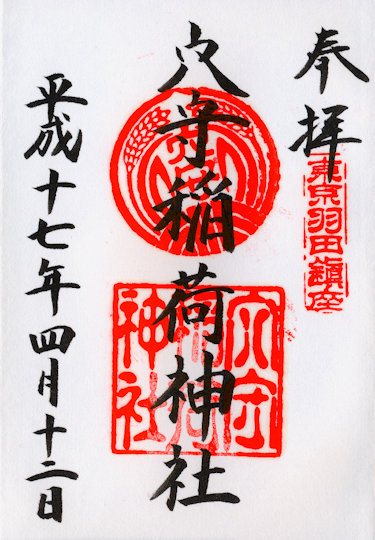 奉拝
東京羽田鎮座
穴守稲荷神社
穴守
稲荷
神社
平成十七年四月十二日